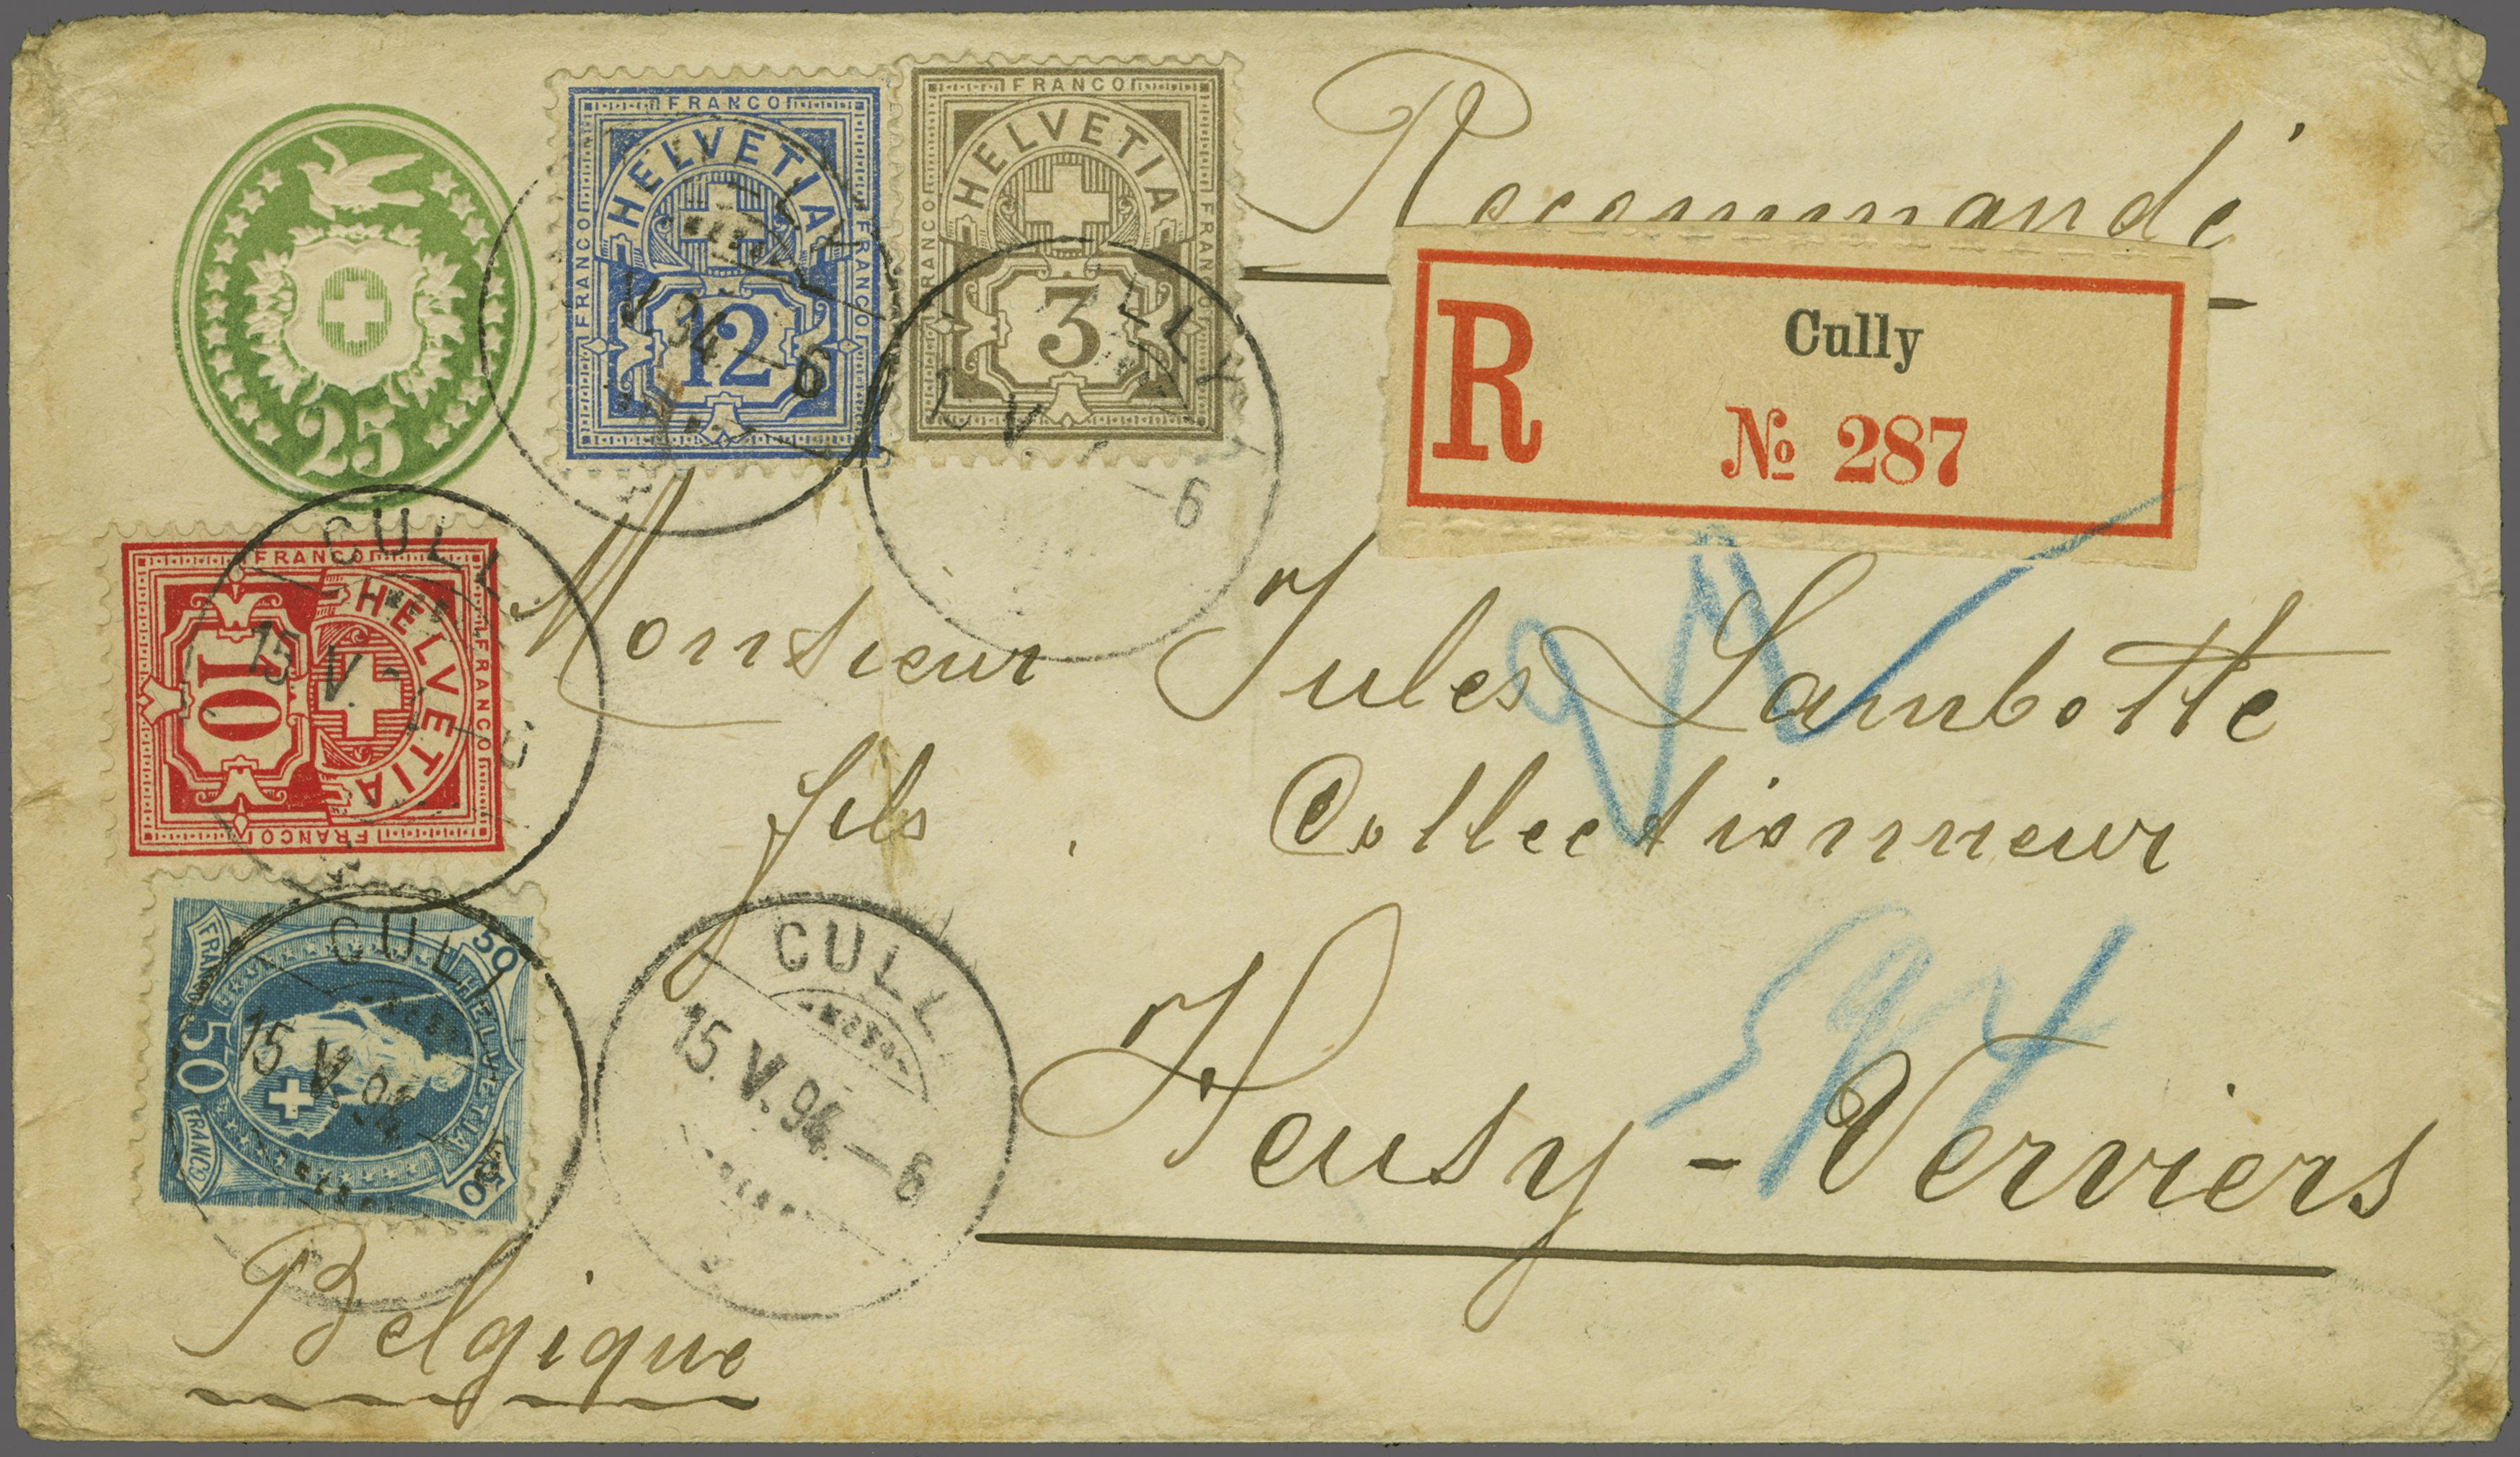 25
FRANCO
HELVETIA
FRANCO
FRANCO
12
FRANCO
HELVETIA
FRANCO
FRANCO
3
LLY
V.94.-6
LLY
V.
-6
Recommandé
R
Cully
No 287
FRANCO
HELVETIA
FRANCO
FRANCO
10
CULLY
15 V.
6
Monsieur Jules Lambotte
fils . Collectionneur
Heusy - Verviers
594
HELVETIA
50
50
50
FRANCO
FRANCO
CULLY
15 V. 94
CULL
15.V.94.-6
Belgique